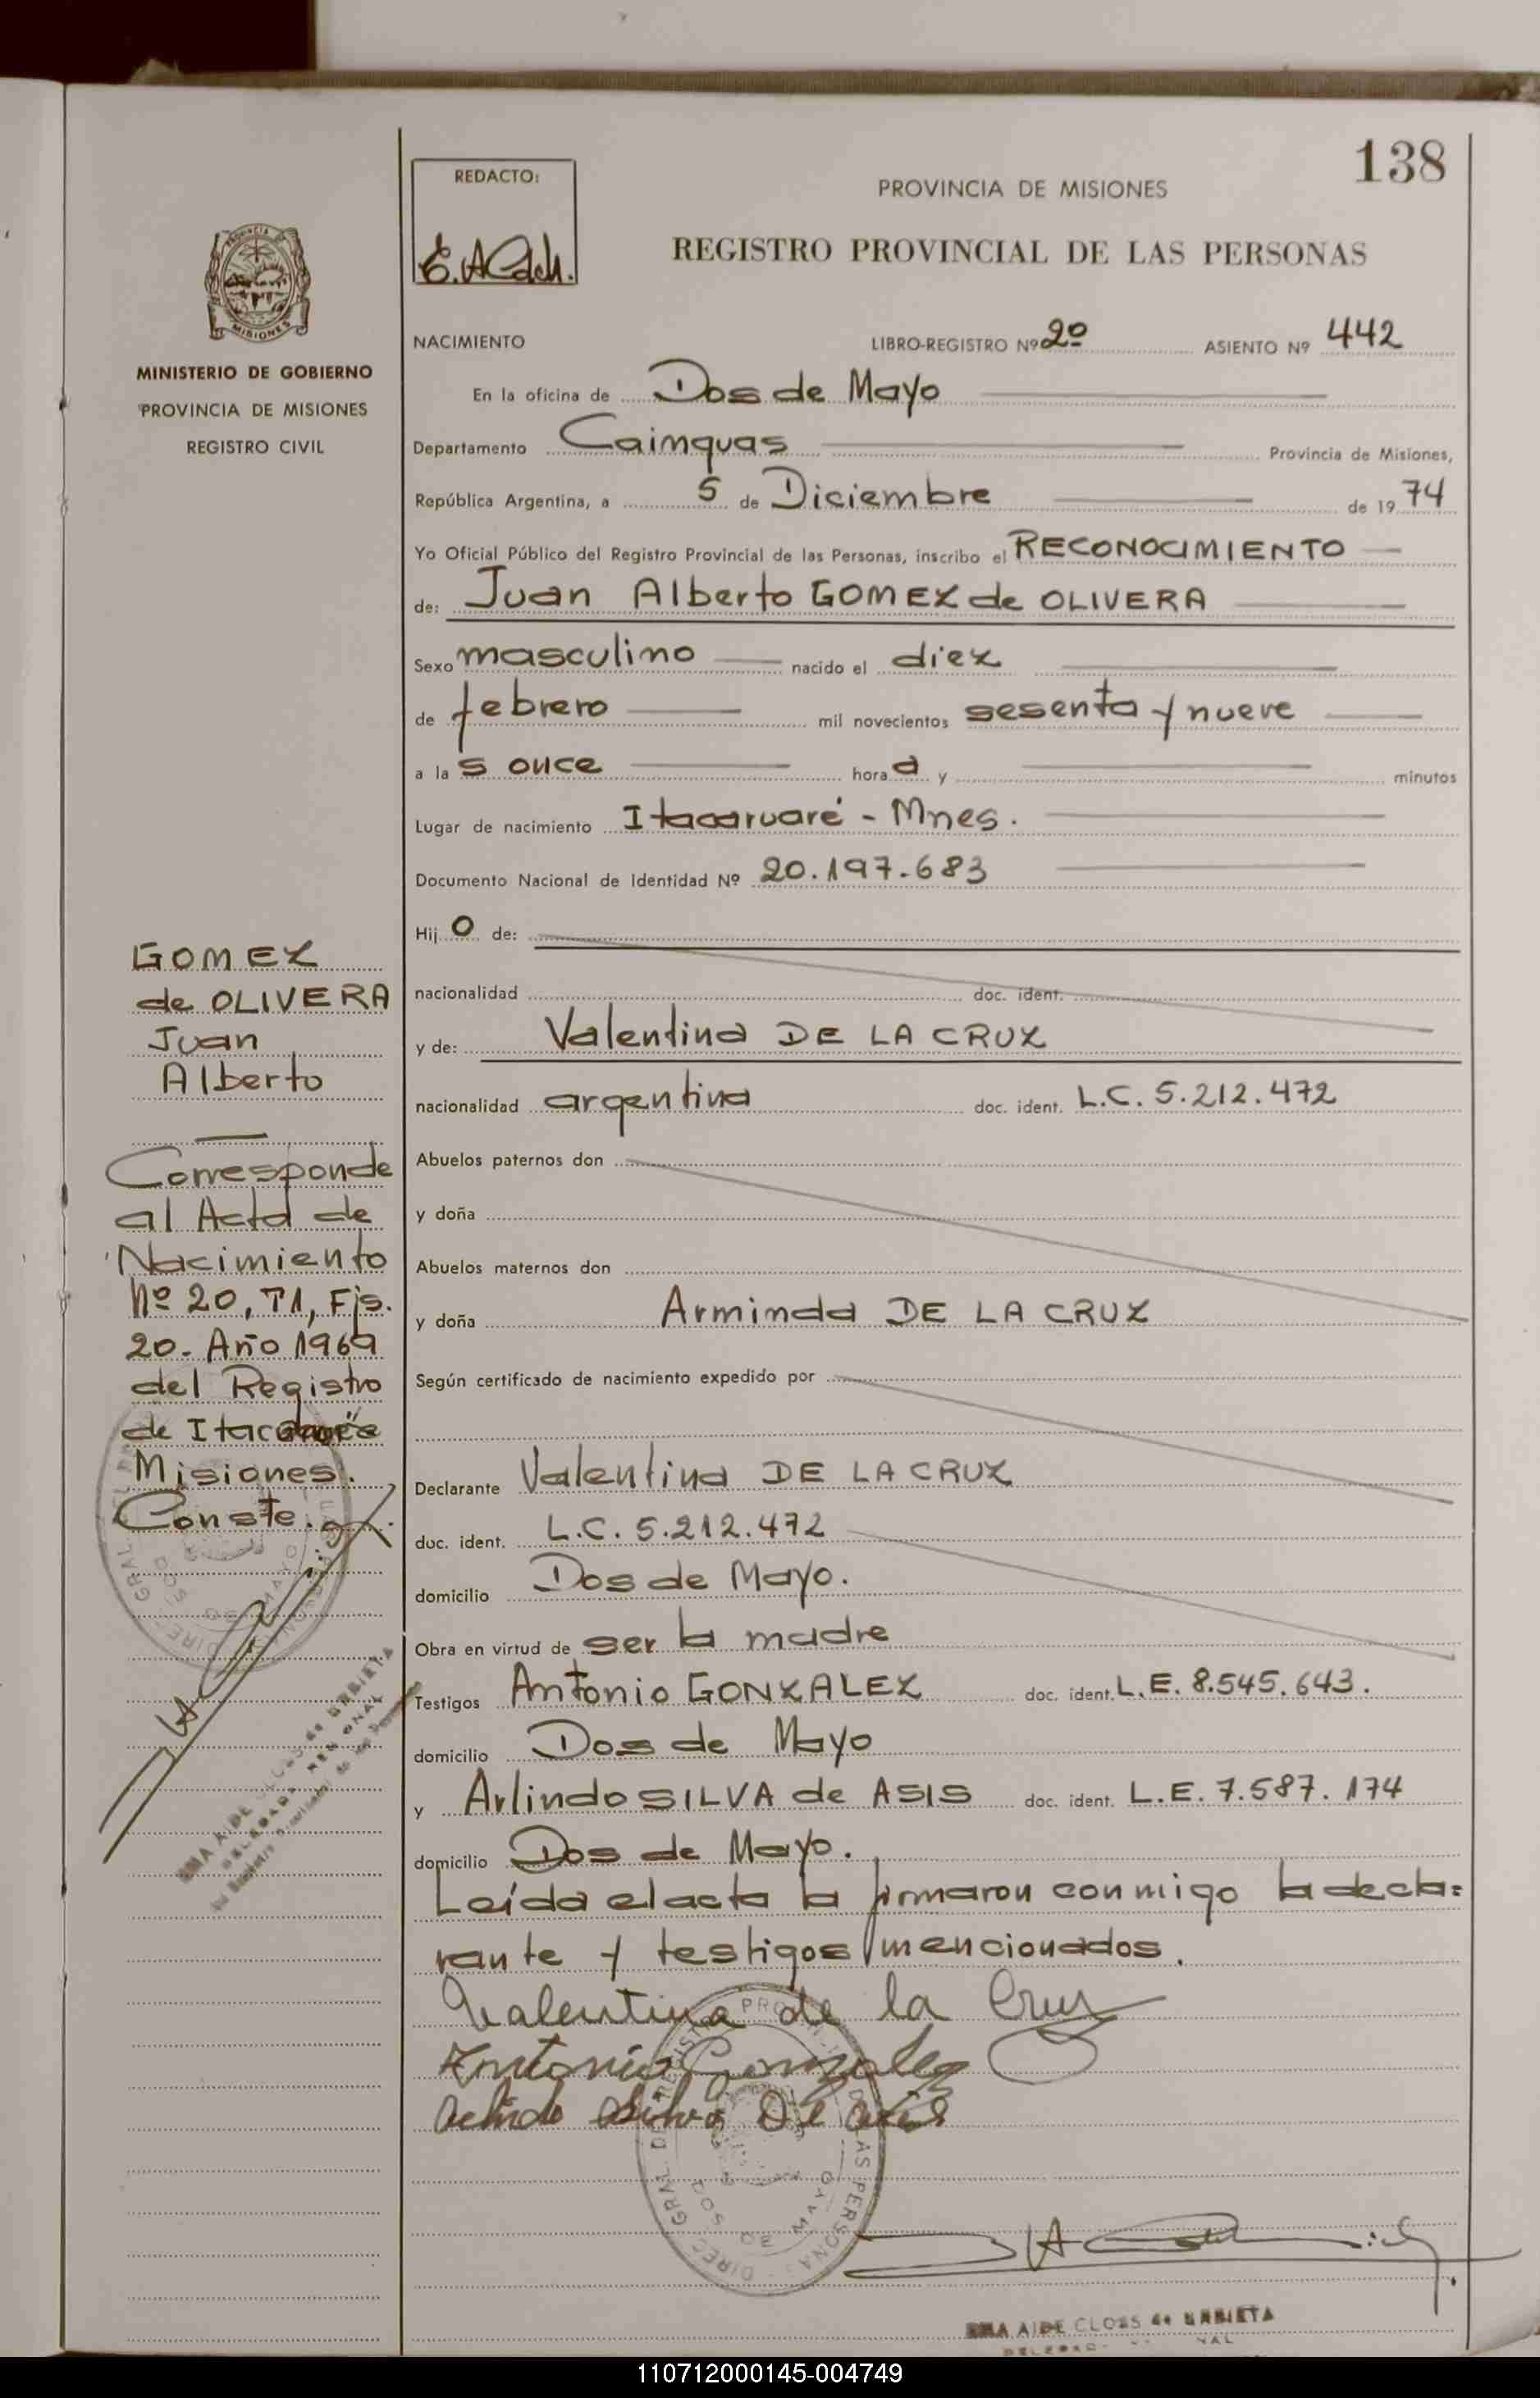 138
REDACTO:
PROVINCIA DE MISIONES
REGISTRO PROVINCIAL DE LAS PERSONAS
MINISTERIO DE GOBIERNO
PROVINCIA DE MISIONES
REGISTRO CIVIL
NACIMIENTO LIBRO-REGISTRO Nº 2º ASIENTO Nº 442
En la oficina de Dos de Mayo
Departamento Cainguas Provincia de Misiones,
República Argentina, a 5 de Diciembre de 19 74
Yo Oficial Público del Registro Provincial de las Personas, inscribo el RECONOCIMIENTO
de: Juan Alberto GOMEZ de OLIVERA
Sexo masculino nacido el diez
de febrero mil novecientos sesenta y nueve
a la s once hora s y minutos
Lugar de nacimiento Itacaruaré - Mnes.
Documento Nacional de Identidad Nº 20.197.683
Hij o de:
nacionalidad doc. ident.
y de: Valentina DE LA CRUZ
nacionalidad argentina doc. ident. L.C. 5.212.472
Abuelos paternos don
y doña
Abuelos maternos don
y doña Arminda DE LA CRUZ
Según certificado de nacimiento expedido por
Declarante Valentina DE LA CRUZ
doc. ident. L.C. 5.212.472
domicilio Dos de Mayo.
Obra en virtud de ser la madre
Testigos Antonio GONZALEZ doc. ident. L.E. 8.545.643.
domicilio Dos de Mayo
y Arlindo SILVA de ASIS doc. ident. L.E. 7.587.174
domicilio Dos de Mayo.
Leída el acta la firmaron conmigo la decla=
rante y testigos mencionados.
Valentina de la Cruz
Antonio Gonzalez
Silva De Asis
GOMEZ
de OLIVERA
Juan
Alberto
Corresponde
al Acta de
Nacimiento
Nº 20, T1, Fjs.
20. Año 1969
del Registro
de
Misiones.
Conste.
AIDE CLOSS de URBIETA
AIDE CLOSS de URBIETA
110712000145-004749